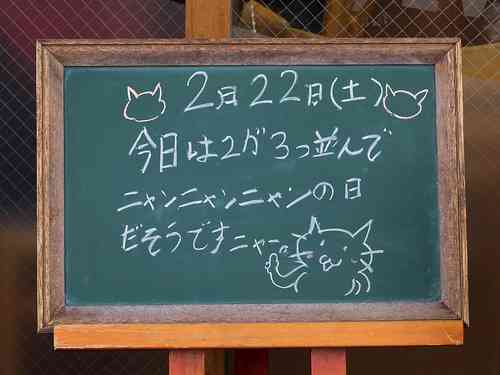 2月22日(土)
今日は2が3つ並んで
ニャンニャンニャンの日
だそうですニャー。